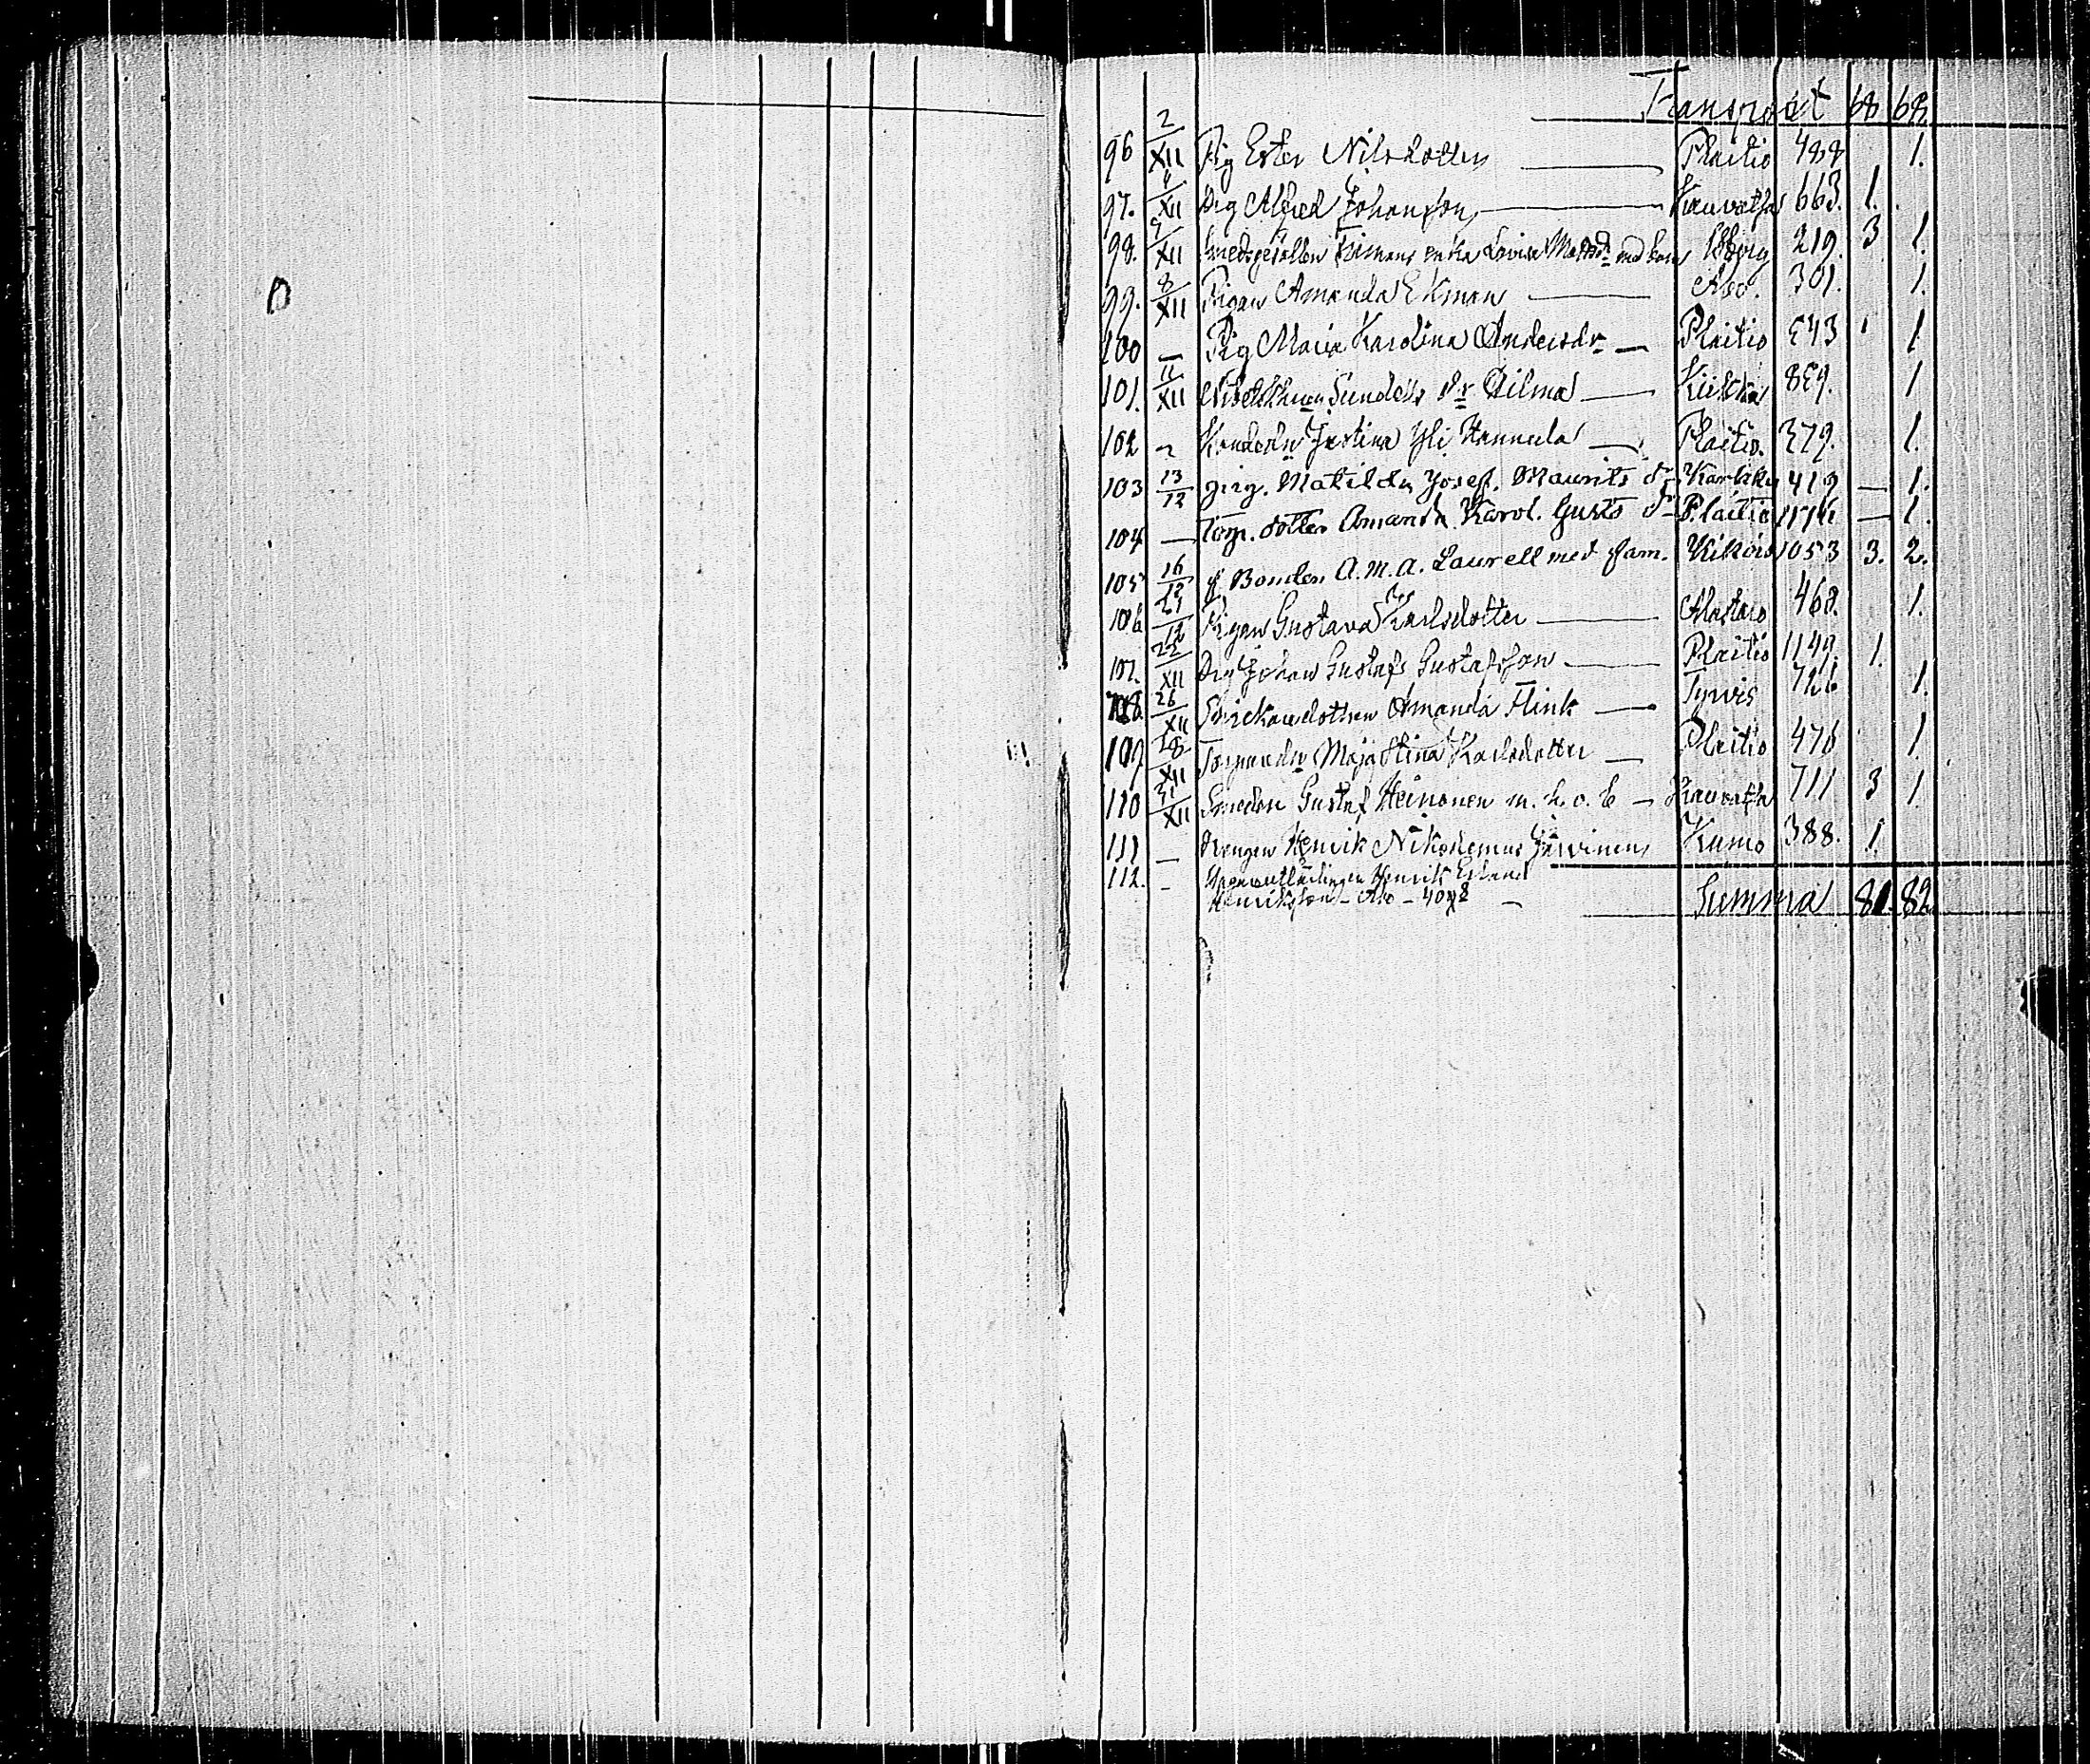 Transport 68 69.
96 2/XII Pig Ester Nilsdotter Plaitio 488 1.
97. 4/XII Drg Alfred Johansson Kauvatsa 663. 1.
98. 9/XII Smedgesällen enka Lovisa Mattsdr med barn Bborg 219. 3 1.
99. 8/XII Pigan Amanda Ekman Åbo. 301. 1.
100 — Pig Maria Karolina Andersdr — Plaitio 543 1
101. 11/XII Sundells dr Hilma Kiikka 859. 1
102 Justina Yli Hannula Plaitio. 379. 1.
103 13/12 Pig. Matilda Josef. Maurits dr Karkku 419 — 1.
104 — Torp. dotter Amanda Karol. Gusts dr P.laitio 1176 — 1.
105 16/12 f Bonden A. M. A. Laurell med fam. Kikois 1053 3. 2.
106 21/12 Pigan Gustava Karlsdotter Alastaro 468. 1.
107. 22/XII Drg Johan Gustaf Gustafsson Plaitio 1149. 1.
108. 26/XII Amanda Flink Tyrvis 726 1.
109 28/XII Maja Stina Karlsdotter Plaitio 476 1
110 31/XII Smeden Gustaf Heinonen m. h. o. b — Kauvatsa 711 3 1
111 — Drengen Henrik Nikodemus Järvinen Kumo 388. 1.
112. - Henrik Erland
Henriksson - Åbo -
Summa 81. 82.